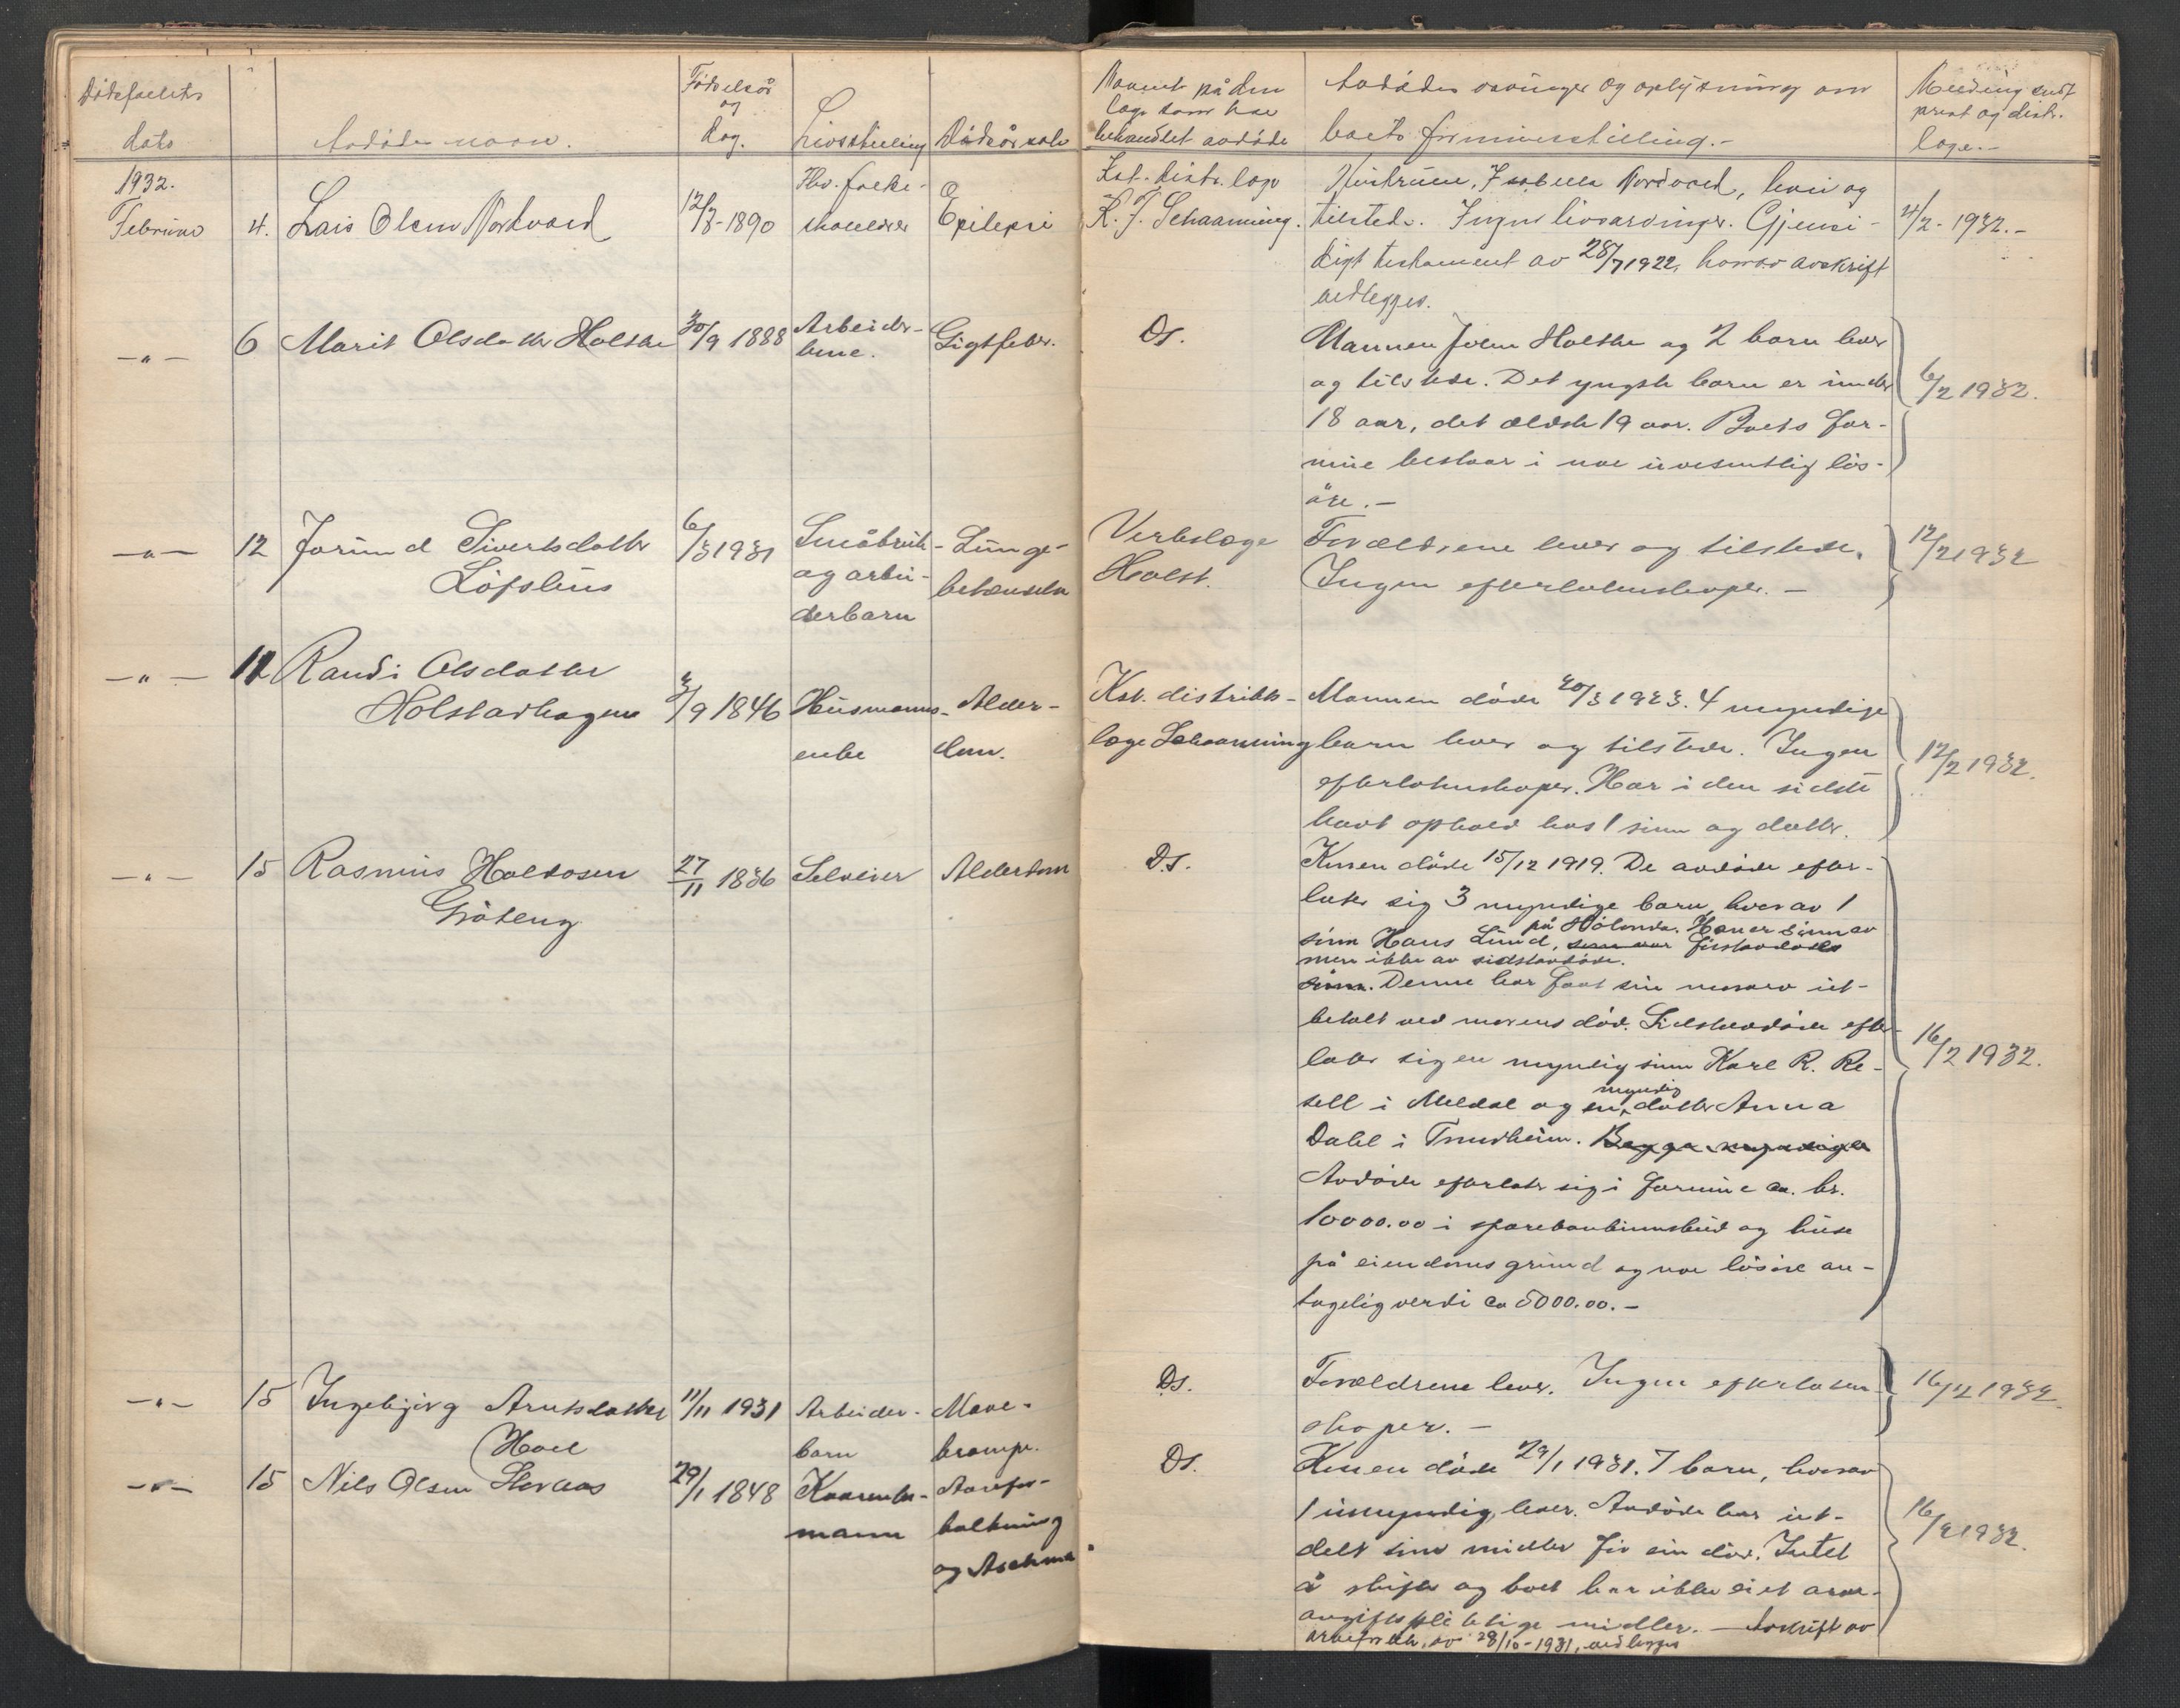 Dødsfaldets
dato
Avdødes navn.
Fødselsår
og
dag.
Livsstilling
Dødsårsak
Navnet på den
læge som har
behandlet avdøde
Avdødes arvinger og oplysning om
boets formuesstilling.-
Melding sendt
prest og distr.
læge.-
1932.
Februar 4. Lars Olsen Nordvold 12/3-1890
Hv. folke-
skolelærer
Epilepsi
Kst. distr. læge
K. F. Schaanning.
Hustruen, Isabella Nordvold, lever og
tilstede. Ingen livsarvinger. Gjensi-
digt testament av 28/7 1922, hvorav avskrift
vedlegges.
4/2-1932.-
-"- 6 Marit Olsdatter Holthe 30/9 1888
Arbeider-
kone.
Gigtfeber.
Ds.
Mannen John Holthe og 2 barn lever
og tilstede. Det yngste barn er under
18 aar, det ældste 19 aar. Boets for-
mue bestaar i noe uvesentlig løs-
øre.-
6/2 1932.
-"- 12 Jorund Sivertsdatter
Løfshus
6/3 1931
Småbruk-
og arbei-
derbarn
Lunge-
betændelse
Verkslæge
Holst.
Forældrene lever og tilstede.
Ingen efterlatenskaper.-
12/2 1932
-"- 11 Randi Olsdatter
Holstadhagen
/9 1846
Husmanns-
enke
Alder-
dom.
Kst. distrikts-
læge Schaanning
Mannen døde 20/3 1923. 4 myndige
barn lever og tilstede. Ingen
efterlatenskaper. Har i den sidste
havt ophold hos 1 sønn og datter.
12/2 1932.
-"- 15 Rasmus Haldosen
Grøteng
27/11 1836
Selveier
Alderdom
Ds.
Konen døde 15/12 1919. De avdøde efter-
later sig 3 myndige barn, hvorav 1
på Hølonda. Han er sønn av
sønn Hans Lund, som var førstavdødes
men ikke av sidstavdøde.
sønn. Denne har faat sin morsarv ut-
betalt ved morens død. Sidstavdøde efter-
later sig en myndig sønn Karl R. Re-
myndig
sell i Meldal og en datter Anna
Dahl i Trondheim. Begge myndige
Avdøde efterlater sig i formue ca. kr.
10000.00 i sparebankinnskud og huse
på eiendoms grund og noe løsøre an-
tagelig verdi ca 5000.00.-
16/2 1932.
-"- 15 Ingebjørg Arntsdatter
Hoel
11/11 1931
Arbeider-
barn
Mave-
krampe.
Ds.
Forældrene lever. Ingen efterlaten-
skaper.-
16/2 1932.
-"- 15 Nils Olsen Storaas 29/1 1848
Kaarenke-
mann
Aarefor-
kalkning
og Asthma
Ds.
Konen døde 29/1 1931. 7 barn, hvorav
1 umyndig, lever. Avdøde har ut-
delt sine midler før sin død. Intet
å skifte og boet har ikke eiet arve-
avgiftspliktige midler.- Avskrift av
av 28/10-1931, vedlegges
16/2 1932.